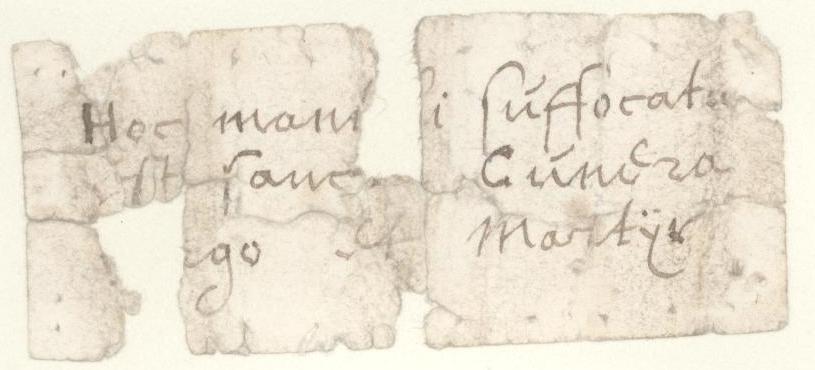 Hoc mani i suffocat
st sanc Cunera
go et Martÿr